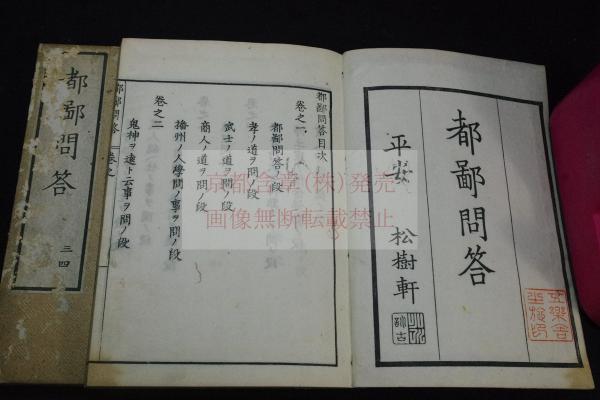 都鄙問答
平安 松樹軒
都鄙問答目次
巻之一
都鄙問答ノ段
孝ノ道ヲ問ノ段
武士ノ道ヲ問ノ段
商人ノ道ヲ問ノ段
播州ノ人學問ノ事ヲ問ノ段
巻之二
鬼神ヲ遠ト云事ヲ問ノ段
都鄙問答
巻之
都鄙問答
三四
京都含章(株)発売
画像無断転載禁止